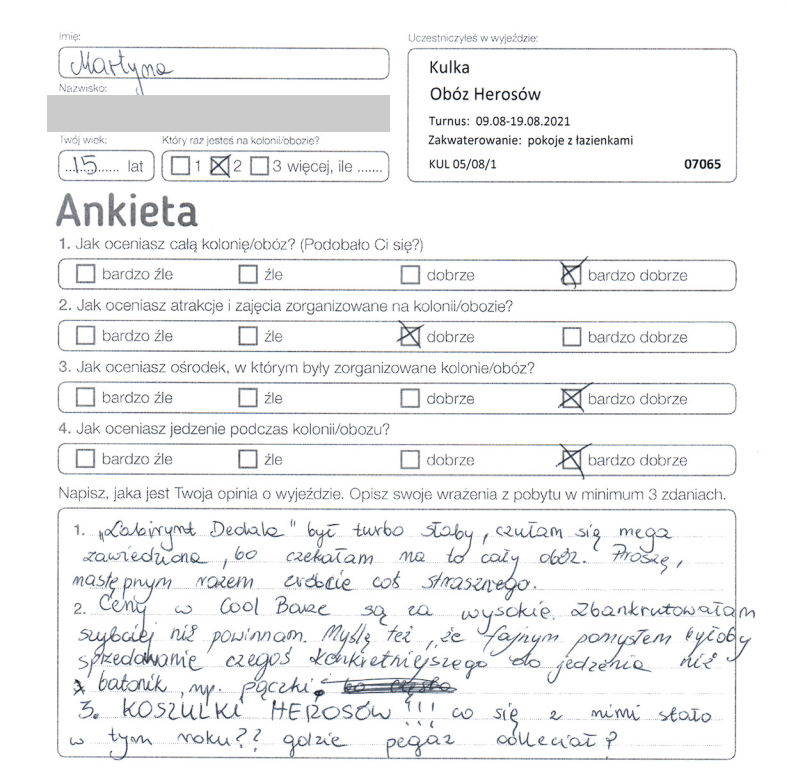 Imię:
Martyna
Nazwisko:
Twój wiek:
Który raz jesteś na kolonii/obozie?
15 lat
1 2 3 więcej, ile .......
Uczestniczyłeś w wyjeździe:
Kulka
Obóz Herosów
Turnus: 09.08-19.08.2021
Zakwaterowanie: pokoje z łazienkami
KUL 05/08/1 07065
Ankieta
1. Jak oceniasz całą kolonię/obóz? (Podobało Ci się?)
bardzo źle źle dobrze bardzo dobrze
2. Jak oceniasz atrakcje i zajęcia zorganizowane na kolonii/obozie?
bardzo źle źle dobrze bardzo dobrze
3. Jak oceniasz ośrodek, w którym były zorganizowane kolonie/obóz?
bardzo źle źle dobrze bardzo dobrze
4. Jak oceniasz jedzenie podczas kolonii/obozu?
bardzo źle źle dobrze bardzo dobrze
Napisz, jaka jest Twoja opinia o wyjeździe. Opisz swoje wrażenia z pobytu w minimum 3 zdaniach.
1. „Labirynt Dedala" był turbo słaby, czułam się mega
zawiedziona, bo czekałam na to cały obóz. Proszę,
następnym razem zróbcie coś strasznego.
2. Ceny w Cool Barze są za wysokie. Zbankrutowałam
szybciej niż powinnam. Myślę też, że fajnym pomysłem byłoby
sprzedawanie czegoś konkretniejszego do jedzenia niż
batonik, np. pączki.
3. KOSZULKI HEROSÓW!!! co się z nimi stało
w tym roku?? gdzie pegaz odleciał?